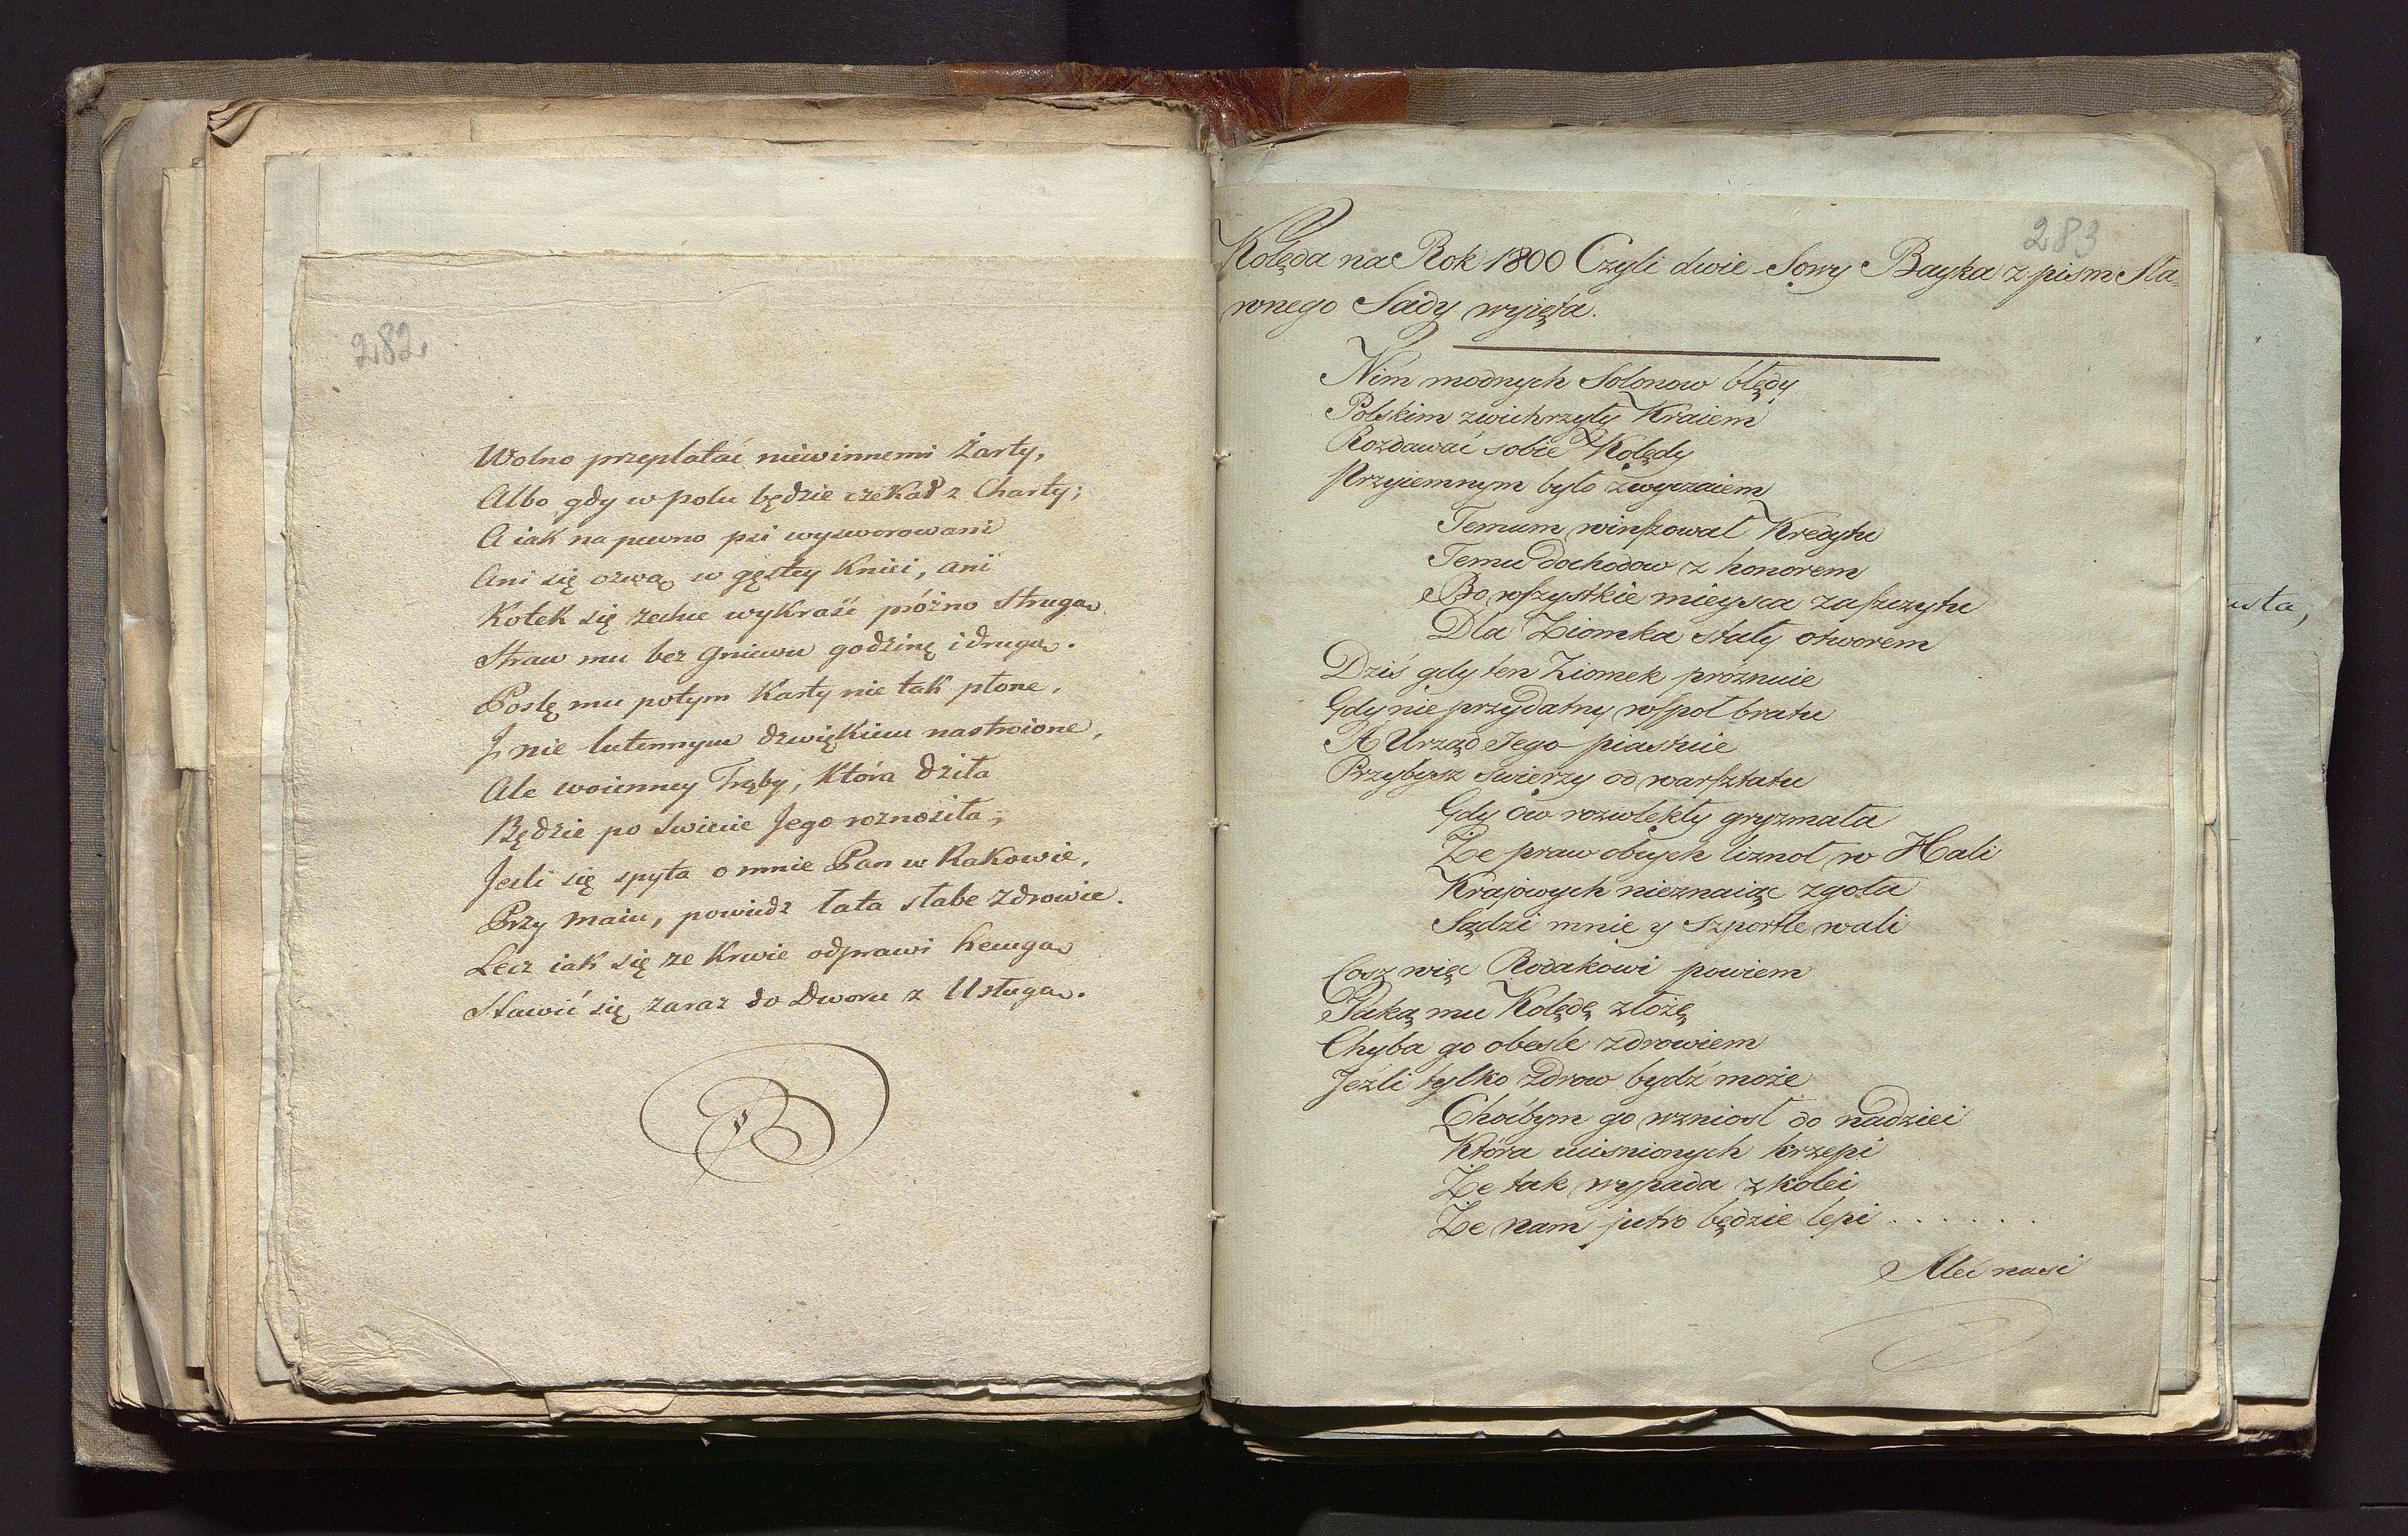 282.
Wolno przeplatać niewinnemi żarty,
Albo gdy w polu będzie czekał z Charty;
A iak na pewno psi wysworowani
Ani się ozwą w gęstey Kniei, ani
Kotek się zechce wykraść próżno Strugą
Straw mu bez gniewu godzinę i drugą.
Poslę mu potym Karty nie tak płone,
J nie lutennym dzwiękiem nastroione,
Ale woienney Trąby, która dziła
Będzie po Swiecie Jego roznosiła;
Jesli się spyta o mnie Pan w Rakowie,
Przy Maiu, powiedz łata słabe zdrowie.
Lecz iak się ze Krwie odprawi
Stawić się zaraz do Dworu z Usługą.
283
Kolęda na Rok 1800 Czyli dwie Sowy Bayka z pism Sła=
wnego Sady wyięta.
Nim modnych Solonow błędy
Polskim zwichrzyły Kraiem
Rozdawać sobie Kolędy
Przyiemnym było zwyczaiem
Temum winszował Kredytu
Temu dochodow z honorem
Bo wszystkie mieysca zaszczytu
Dla Ziomka stały otworem
Dziś gdy ten Ziomek próznuie
Gdy nie przydatny wspoł bratu
A Urząd Jego piastuie
Przybysz swierzy od warsztatu
Gdy ów rozwlekły gryzmała
Że praw obcych liznoł w Hali
Krajowych nieznaiąc zgoła
Sądzi mnie y szportle wali
Cosz więc Rodakowi powiem
Jaką mu Kolędę złożę
Chyba go obeslę zdrowiem
Jeźli tylko zdrow bydź może
Choćbym go wzniosł do nadziei
Która ucisnionych krzepi
Że tak wypada z kolei
Że nam jutro będzie lepi . . . . . . .
Aleć nasi
usta,